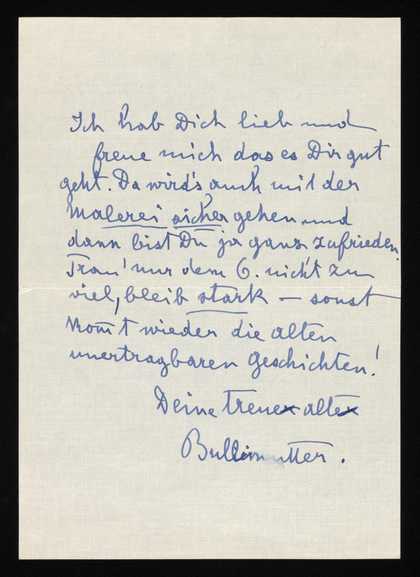 Ich hab Dich lieb und
freue mich das es Dir gut
geht. Da wird's auch mit der
Malerei sicher gehen und
dann bist Du ja ganz zufrieden.
Trau' nur dem G. nicht zu
viel, bleib stark – sonst
kommt wieder die alten
unertragbaren Geschichten!
Deine treue alte
Bullimutter.